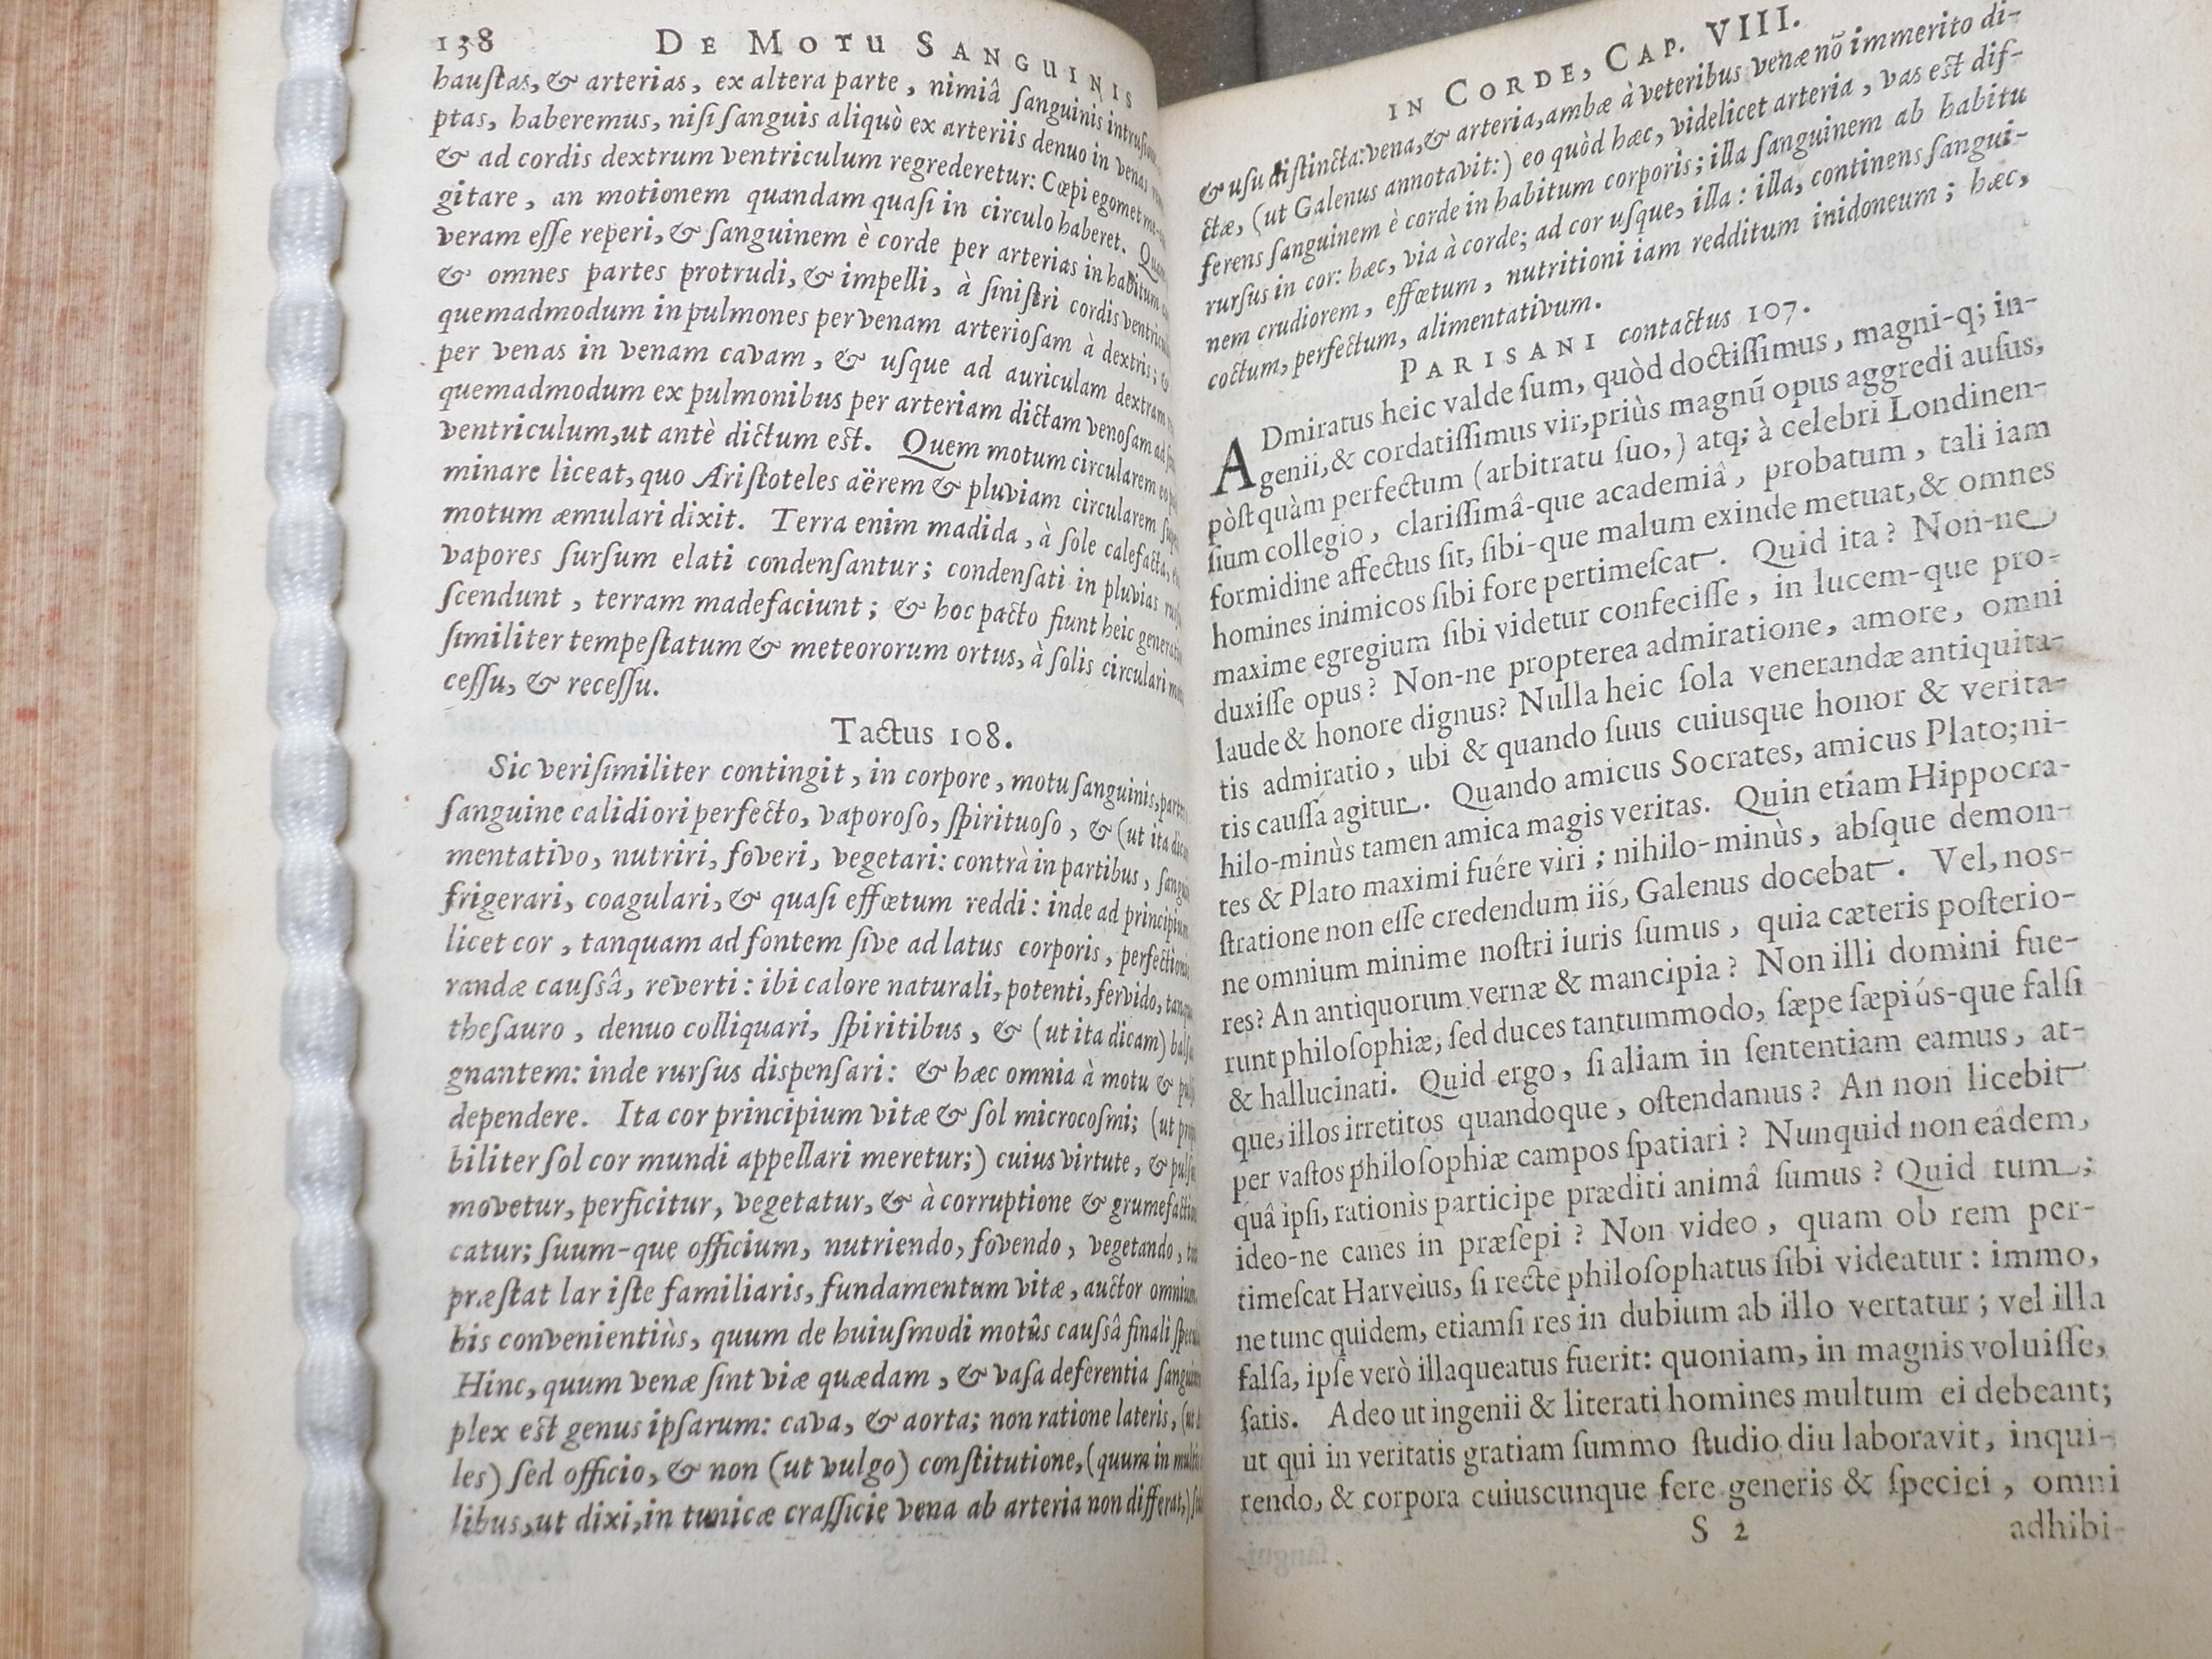 138 DE MOTU SANGUINIS
hauſtas, & arterias, ex altera parte, nimiâ ſanguinis
ptas, haberemus, niſi ſanguis aliquò ex arteriis denuo in venas
& ad cordis dextrum ventriculum regrederetur: Cœpi egomet
gitare, an motionem quandam quaſi in circulo haberet.
veram eſſe reperi, & ſanguinem è corde per arterias in habitum
& omnes partes protrudi, & impelli, à ſiniſtri cordis
quemadmodum in pulmones per venam arterioſam à dextris;
per venas in venam cavam, & uſque ad auriculam dextram
quemadmodum ex pulmonibus per arteriam dictam venoſam ad
ventriculum, ut antè dictum est. Quem motum circularem eo
minare liceat, quo Ariſtoteles aërem & pluviam circularem
motum æmulari dixit. Terra enim madida, à ſole calefacta,
vapores ſurſum elati condenſantur; condenſati in pluvias
ſcendunt, terram madefaciunt; & hoc pacto fiunt heic
ſimiliter tempeſtatum & meteororum ortus, à ſolis circulari
ceſſu, & receſſu.
Tactus 108.
Sic veriſimiliter contingit, in corpore, motu ſanguinis,
ſanguine calidiori perfecto, vaporoſo, ſpirituoſo, & (ut ita
mentativo, nutriri, foveri, vegetari: contrà in partibus,
frigerari, coagulari, & quaſi effœtum reddi: inde ad principium
licet cor, tanquam ad fontem ſive ad latus corporis,
randæ cauſsâ, reverti: ibi calore naturali, potenti, fervido,
theſauro, denuo colliquari, ſpiritibus, & (ut ita dicam)
gnantem: inde rurſus dispenſari: & hæc omnia à motu &
dependere. Ita cor principium vitæ & ſol microcoſmi; (ut
biliter ſol cor mundi appellari meretur;) cuius virtute, &
movetur, perficitur, vegetatur, & à corruptione &
catur; ſuum-que officium, nutriendo, fovendo, vegetando,
præſtat lar iſte familiaris, fundamentum vitæ, auctor omnium.
bis convenientiùs, quum de huiuſmodi motûs cauſsâ finali
Hinc, quum venæ ſint viæ quædam, & vaſa deferentia
plex est genus ipſarum: cava, & aorta; non ratione lateris,
les) ſed officio, & non (ut vulgo) conſtitutione, (quum in
libus, ut dixi, in tunicæ craſſicie vena ab arteria non differat,)
IN CORDE, CAP. VIII.
& uſu diſtincta: vena, & arteria, ambæ à veteribus venæ nō immerito di-
ctæ, (ut Galenus annotavit:) eo quòd hæc, videlicet arteria, vas est dif-
ferens ſanguinem è corde in habitum corporis; illa ſanguinem ab habitu
rurſus in cor: hæc, via à corde; ad cor uſque, illa: illa, continens ſangui-
nem crudiorem, effœtum, nutritioni iam redditum inidoneum; hæc,
coctum, perfectum, alimentativum.
PARISANI contactus 107.
ADmiratus heic valde ſum, quòd doctiſſimus, magni-q; in-
genii, & cordatiſſimus vir, priùs magnú opus aggredi auſus,
pòſt quàm perfectum (arbitratu ſuo,) atq; à celebri Londinen-
ſium collegio, clariſſimâ-que academiâ, probatum, tali iam
formidine affectus ſit, ſibi-que malum exinde metuat, & omnes
homines inimicos ſibi fore pertimeſcat. Quid ita? Non-ne
maxime egregium ſibi videtur confeciſſe, in lucem-que pro-
duxiſſe opus? Non-ne propterea admiratione, amore, omni
laude & honore dignus? Nulla heic ſola venerandæ antiquita-
tis admiratio, ubi & quando ſuus cuiusque honor & verita-
tis cauſſa agitur. Quando amicus Socrates, amicus Plato; ni-
hilo-minùs tamen amica magis veritas. Quin etiam Hippocra-
tes & Plato maximi fuére viri; nihilo-minùs, abſque demon-
ſtratione non eſſe credendum iis, Galenus docebat. Vel, nos-
ne omnium minime noſtri iuris ſumus, quia cæteris poſterio-
res? An antiquorum vernæ & mancipia? Non illi domini fue-
runt philoſophiæ, ſed duces tantummodo, ſæpe ſæpiús-que falſi
& hallucinati. Quid ergo, ſi aliam in ſententiam eamus, at-
que, illos irretitos quandoque, oſtendamus? An non licebit
per vaſtos philoſophiæ campos ſpatiari? Nunquid non eâdem,
quâ ipſi, rationis participe præditi animâ ſumus? Quid tum;
ideo-ne canes in præſepi? Non video, quam ob rem per-
timeſcat Harveius, ſi recte philoſophatus ſibi videatur: immo,
ne tunc quidem, etiamſi res in dubium ab illo vertatur; vel illa
falſa, ipſe verò illaqueatus fuerit: quoniam, in magnis voluiſſe,
ſatis. Adeo ut ingenii & literati homines multum ei debeant;
ut qui in veritatis gratiam ſummo ſtudio diu laboravit, inqui-
rendo, & corpora cuiuscunque fere generis & ſpeciei, omni
S 2 adhibi-